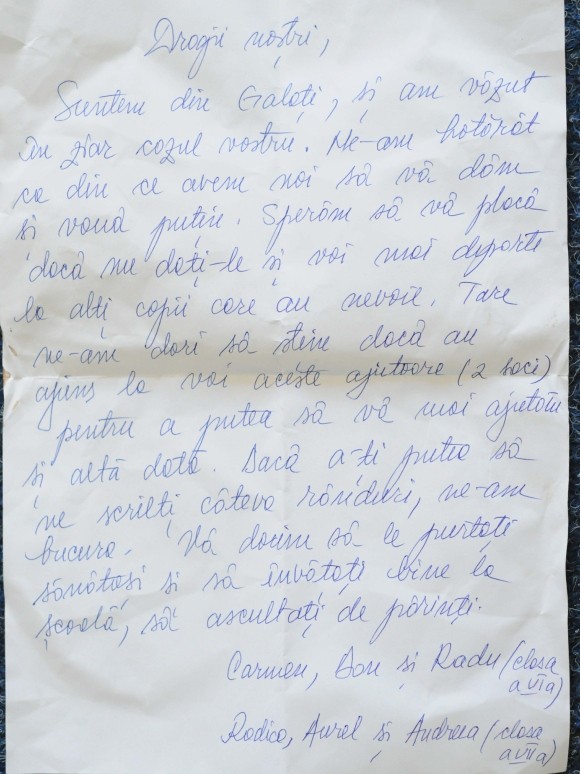 Dragii noștri,
Suntem din Galați, și am văzut
în ziar cazul vostru. Ne-am hotărât
ca din ce avem noi să vă dăm
și vouă puțin. Sperăm să vă placă
dacă nu dați-le și voi mai departe
la alți copii care au nevoie. Tare
ne-am dori să știm dacă au
ajuns la voi aceste ajutoare (2 saci)
pentru a putea să vă mai ajutăm
și altă dată. Dacă a-ți putea să
ne scrieți câteva rânduri, ne-am
bucura. Vă dorim să le purtați
sănătoși și să învățați bine la
școală, să ascultați de părinți.
Carmen, Dan și Radu (clasa
a VI a)
Rodica, Aurel și Andreea (clasa
a VII a)